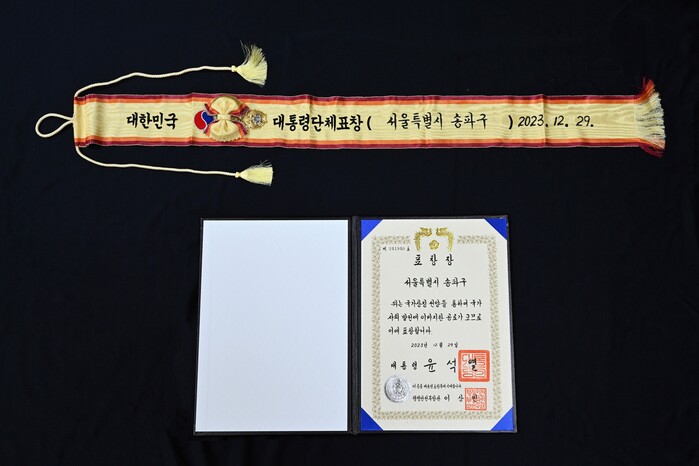 대한민국 대통령단체표창( 서울특별시 송파구 ) 2023. 12. 29.
제 호
표 창 장
서울특별시 송파구
위는 국가 발전을 통하여 국가
사회 발전에 이바지한 공로가 크므로
이에 표창합니다
2023년 12월 29일
대통령 윤 석 열
이 증을 대통령표창부에 기입합니다
행정안전부장관 이 상 민